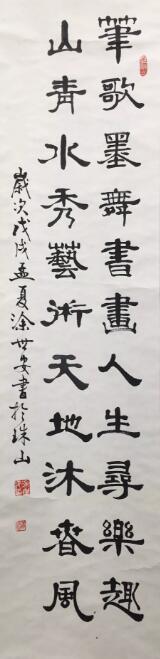 筆歌墨舞書畫人生尋樂趣
山青水秀藝術天地沐春風
歲次戊戌孟夏涂世安書於珠山